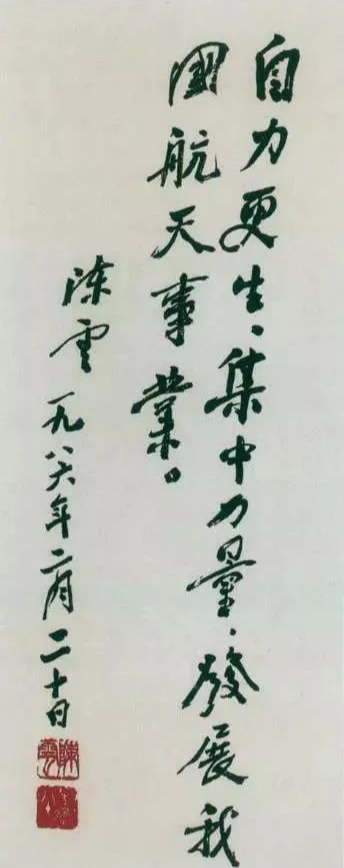 自力更生、集中力量、發展我
國航天事業。
陳雲 一九八六年二月二十日
陳雲